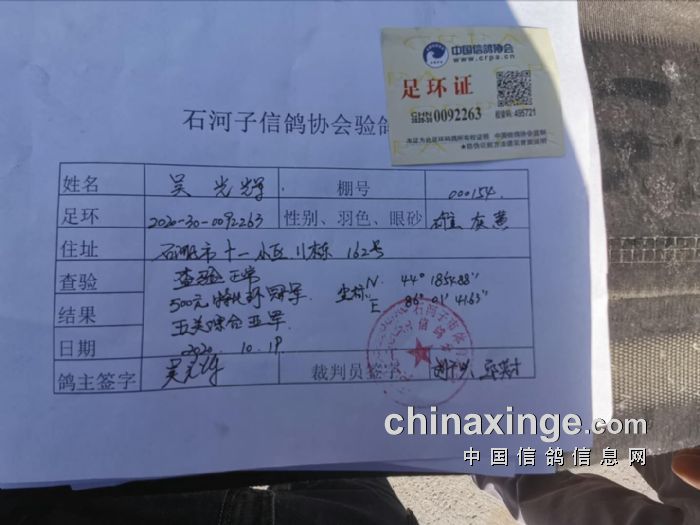 中国信鸽协会
www.crpa.cn
足环证
CHN
2020-30 0092263
验鸽码:495721
石河子信鸽协会验鸽
姓名 吴光辉 棚号 000154
足环 2020-30-0092263 性别、羽色、眼砂 雄 灰 黄
住址 石河子市十一小区 162号
查验 查验正常 坐标 N 44° 1854.88"
结果 500元特比环冠军 E 86° 01' 41.63"
五关综合亚军
日期 2020.10.19
鸽主签字 吴光辉 裁判员签字
chinaxinge.com
中国信鸽信息网